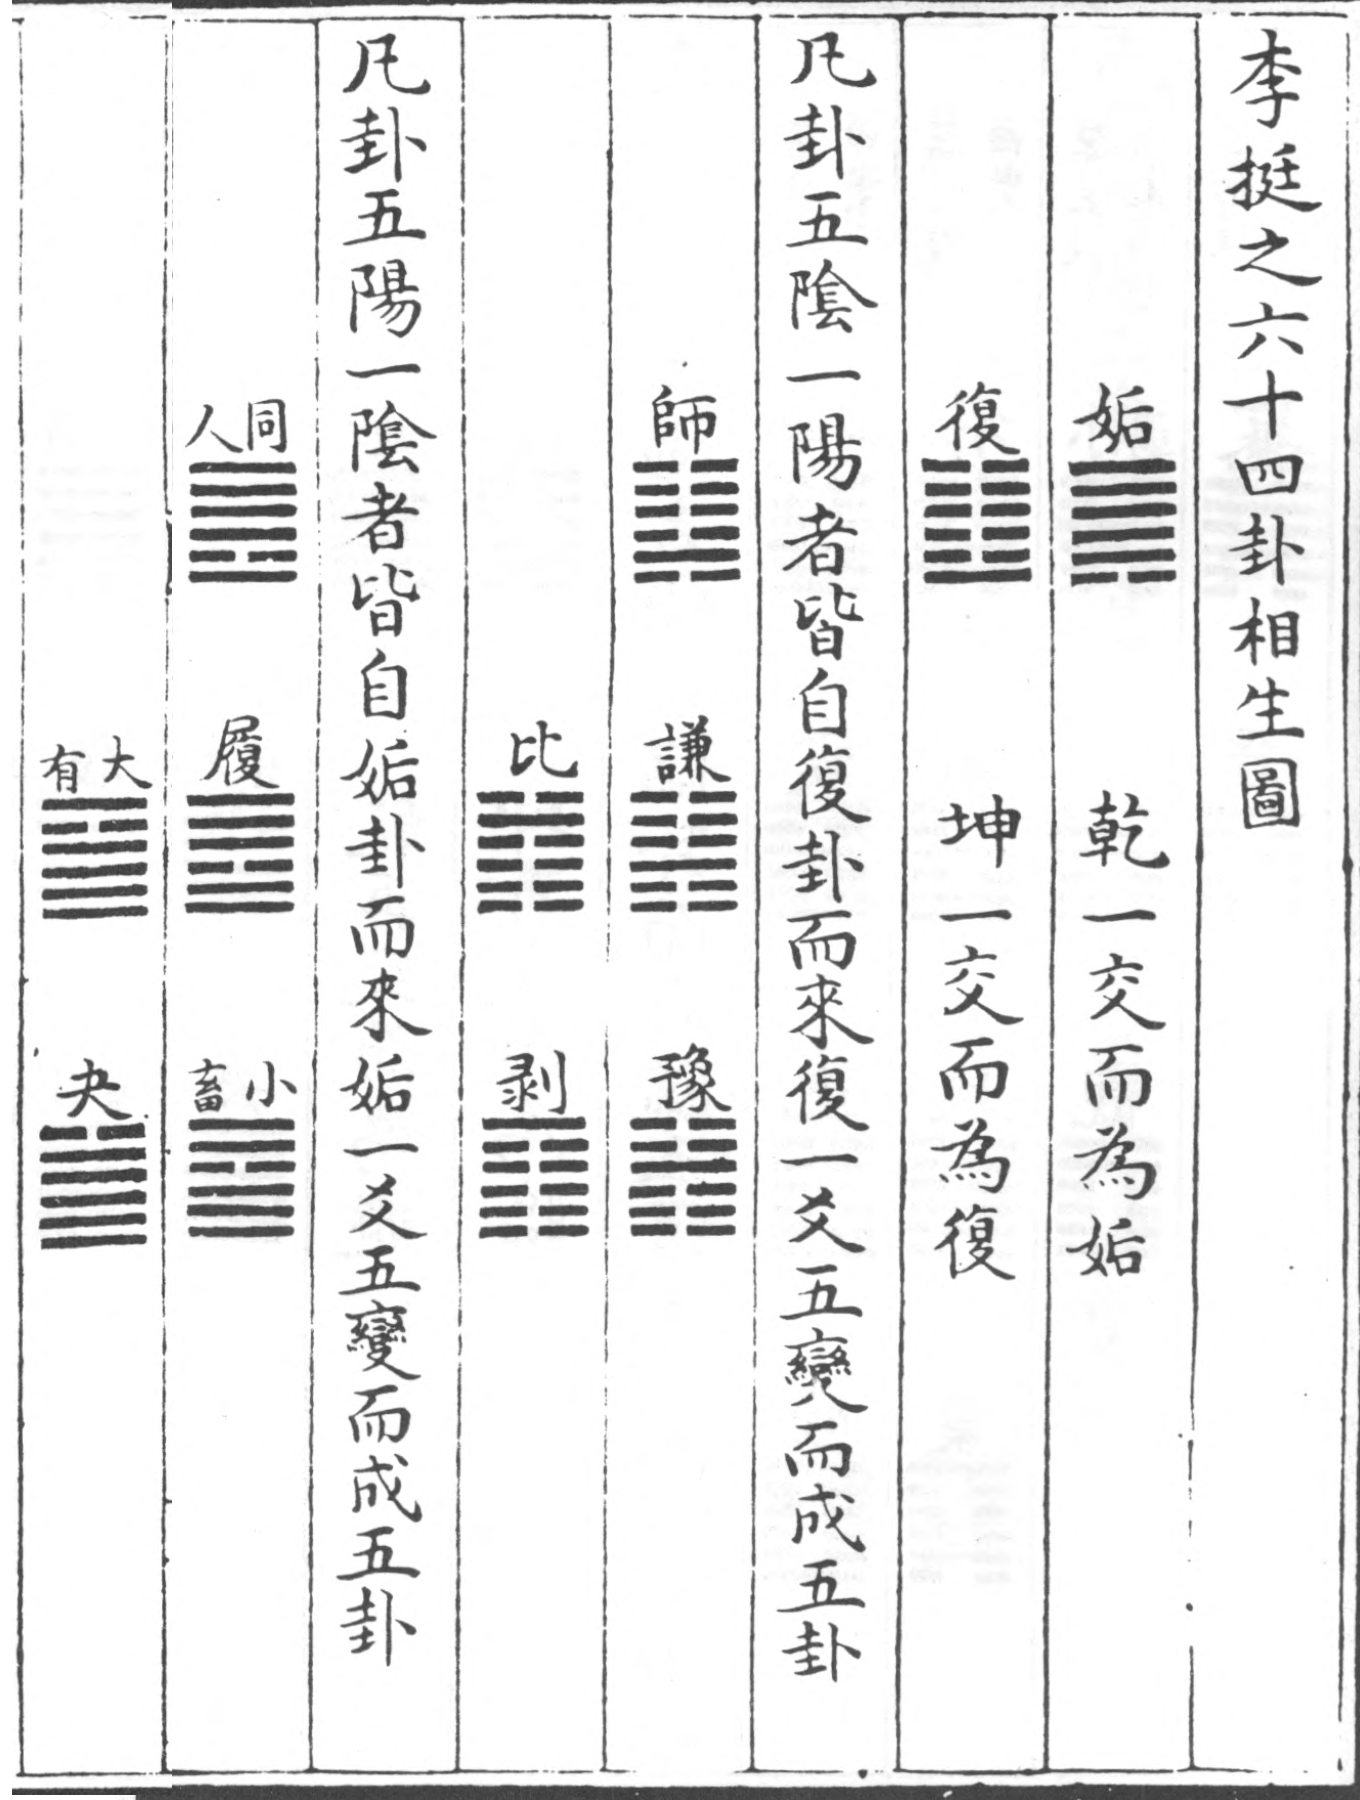 李挺之六十四卦相生圖
姤 乾一交而為姤
復 坤一交而為復
凡卦五陰一陽者皆自復卦而來復一爻五變而成五卦
師 謙 豫
比 剥
凡卦五陽一陰者皆自姤卦而來姤一爻五變而成五卦
同人 履 小畜
大有 夬